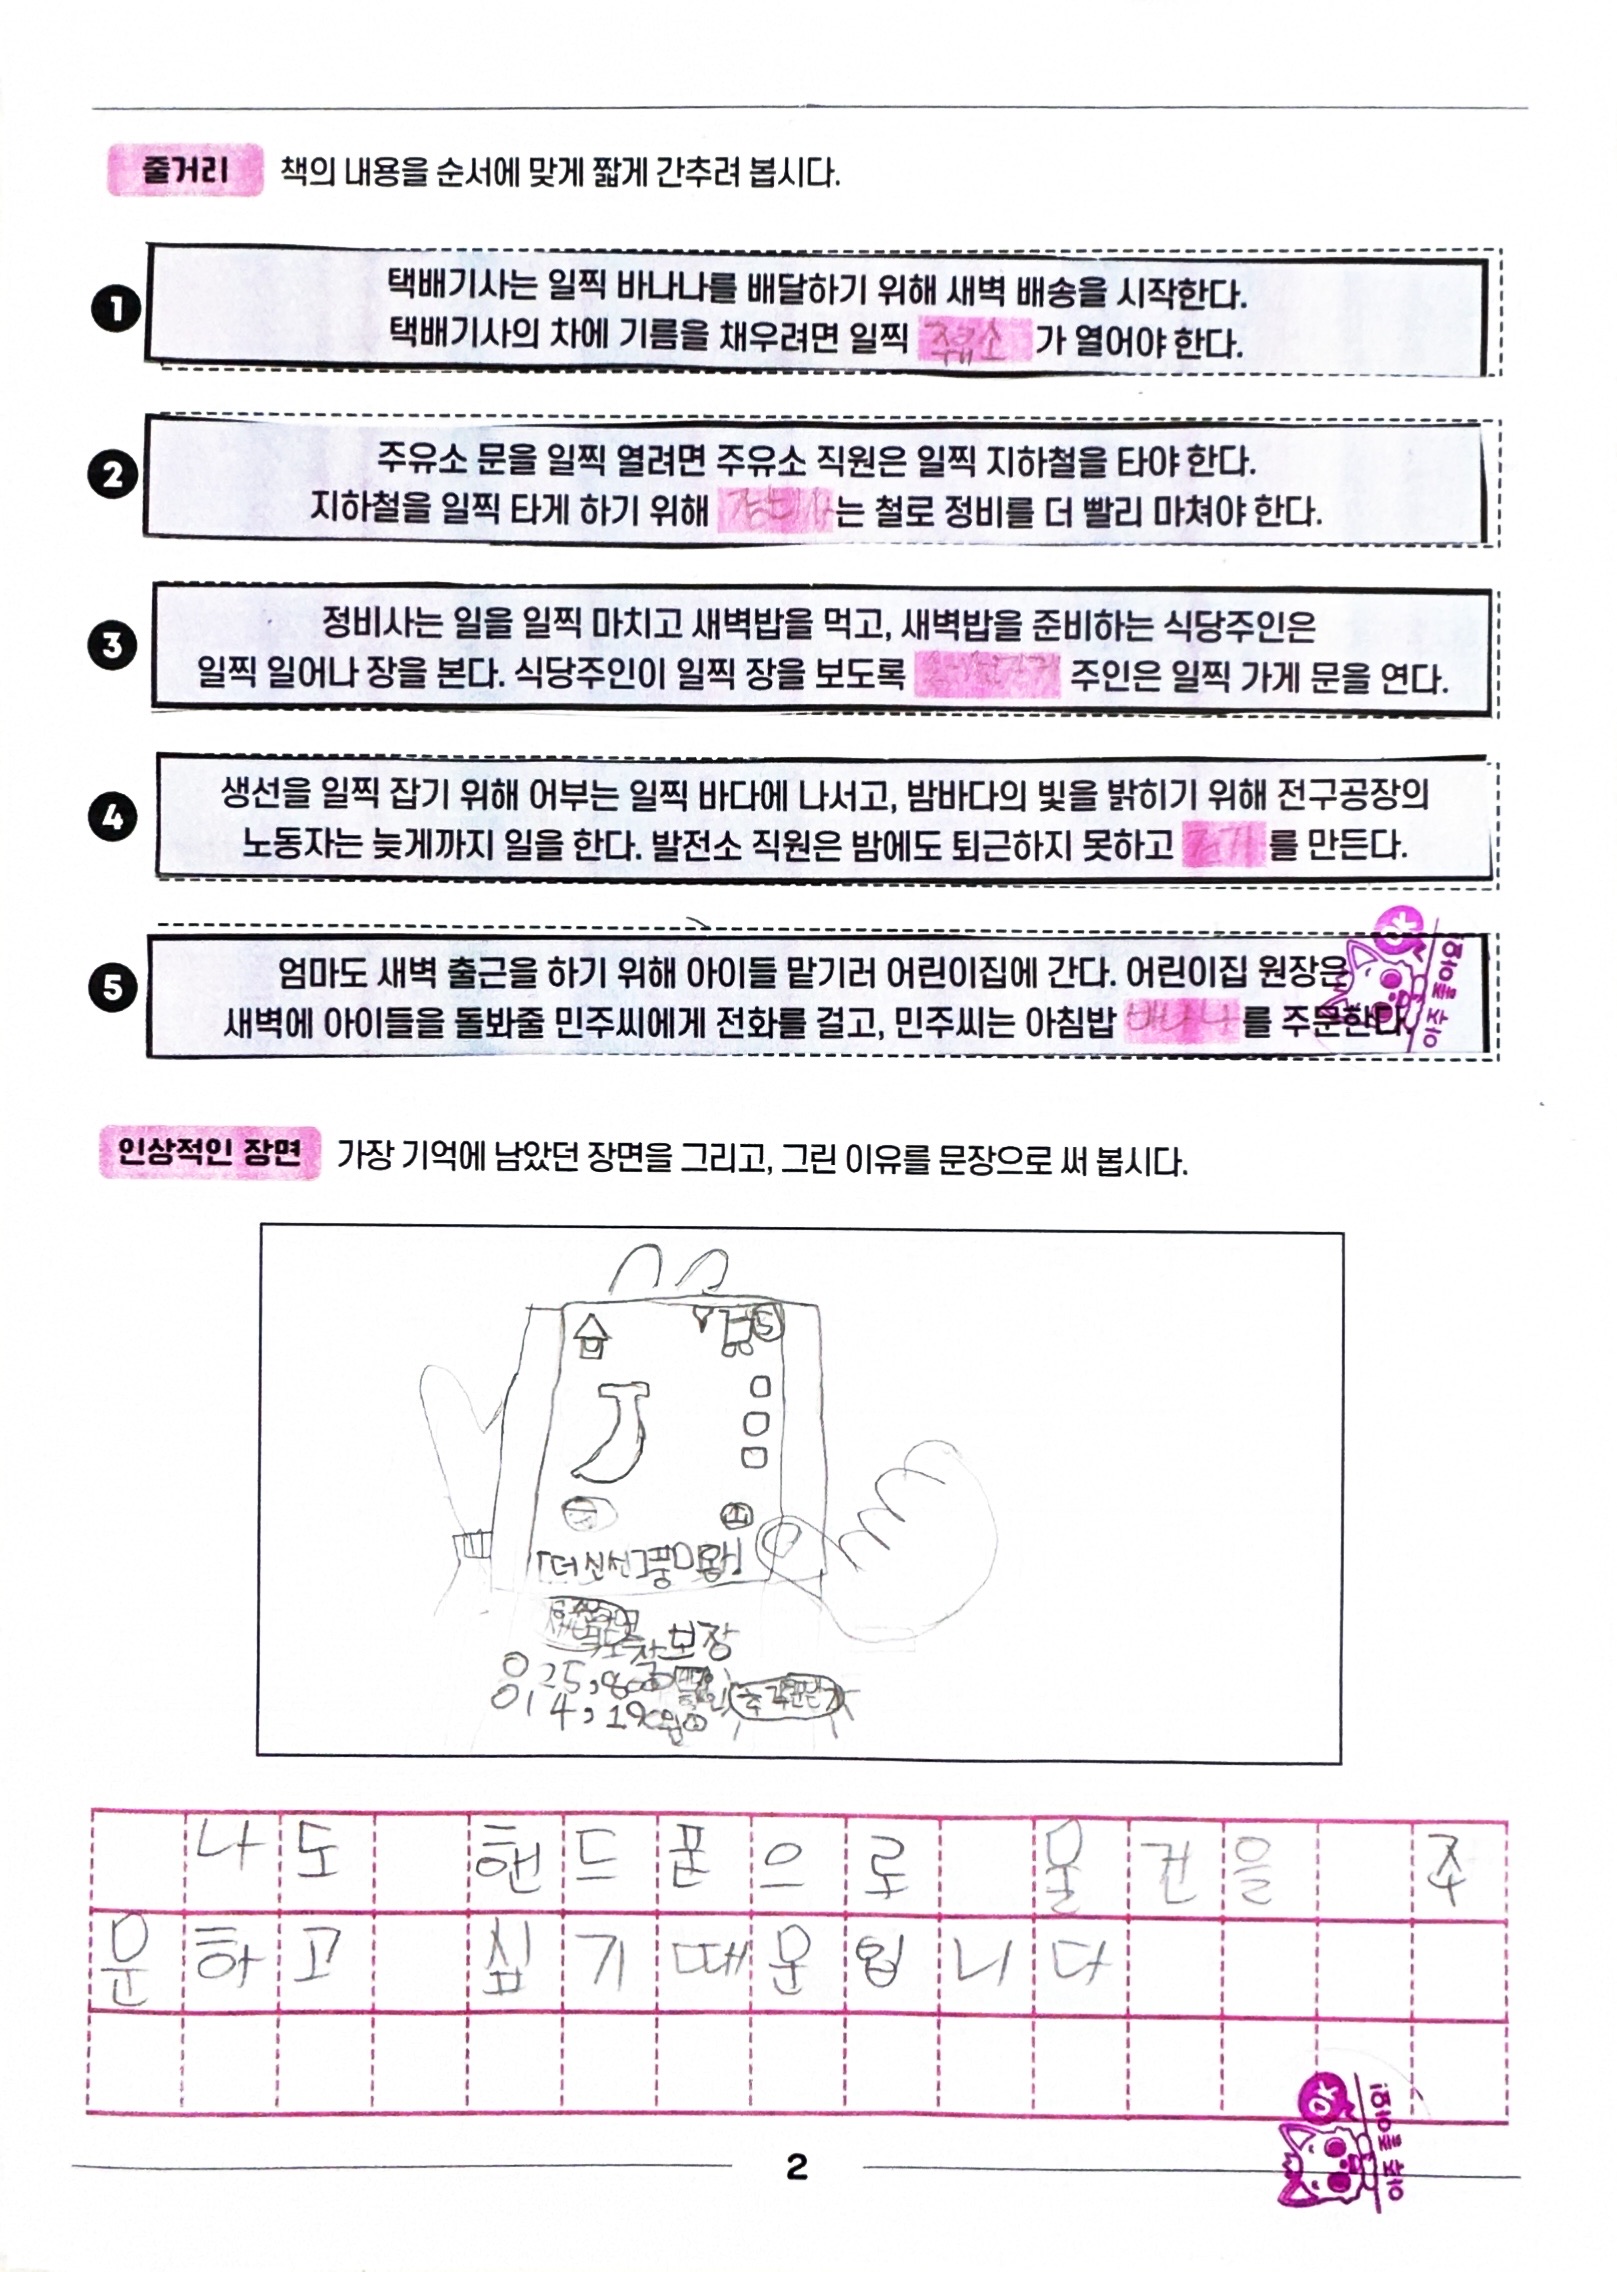 줄거리 책의 내용을 순서에 맞게 짧게 간추려 봅시다.
1
택배기사는 일찍 바나나를 배달하기 위해 새벽 배송을 시작한다.
택배기사의 차에 기름을 채우려면 일찍 주유소 가 열어야 한다.
2
주유소 문을 일찍 열려면 주유소 직원은 일찍 지하철을 타야 한다.
지하철을 일찍 타게 하기 위해 정비사는 철로 정비를 더 빨리 마쳐야 한다.
3
정비사는 일을 일찍 마치고 새벽밥을 먹고, 새벽밥을 준비하는 식당주인은
일찍 일어나 장을 본다. 식당주인이 일찍 장을 보도록 주인은 일찍 가게 문을 연다.
4
생선을 일찍 잡기 위해 어부는 일찍 바다에 나서고, 밤바다의 빛을 밝히기 위해 전구공장의
노동자는 늦게까지 일을 한다. 발전소 직원은 밤에도 퇴근하지 못하고 전기를 만든다.
5
엄마도 새벽 출근을 하기 위해 아이들 맡기러 어린이집에 간다. 어린이집 원장은
새벽에 아이들을 돌봐줄 민주씨에게 전화를 걸고, 민주씨는 아침밥 바나나를 주문한다.
OK
참 잘했어요!
인상적인 장면 가장 기억에 남았던 장면을 그리고, 그린 이유를 문장으로 써 봅시다.
「더 신선」풍미왕」
도착보장
25,800
14,190원
나도 핸드폰으로 물건을 주
문하고 싶기때문입니다
OK
2